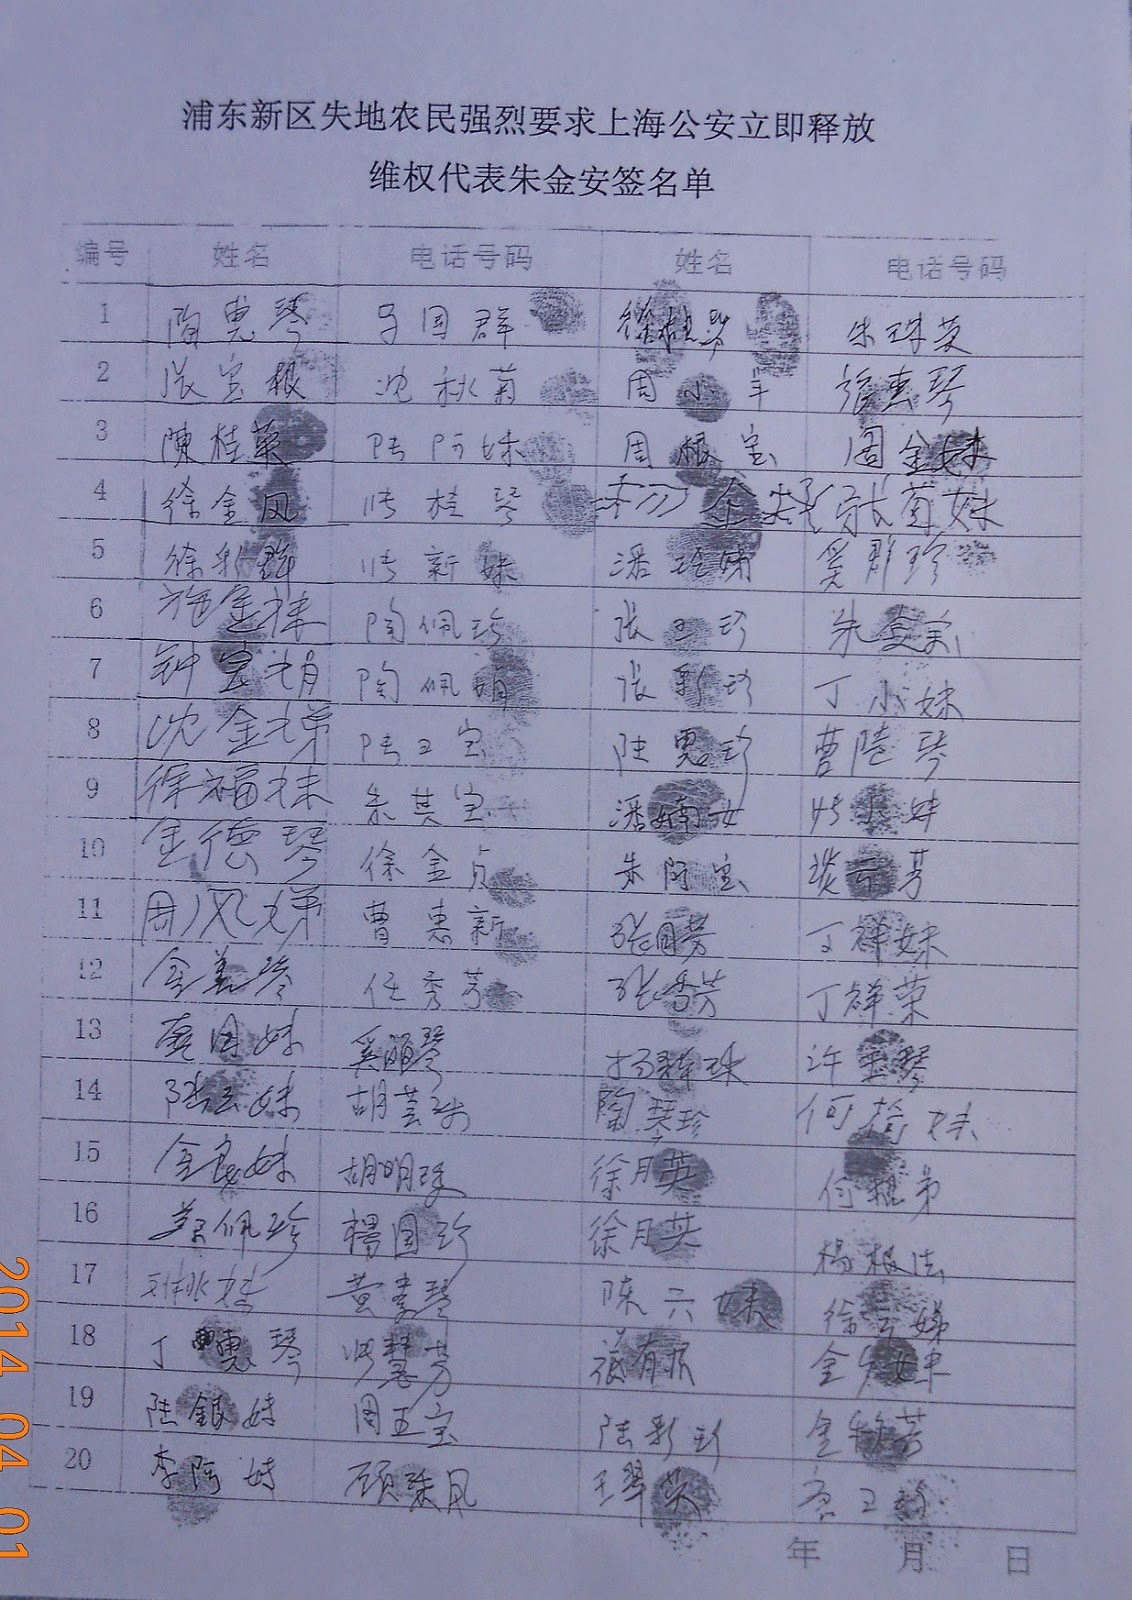 浦东新区失地农民强烈要求上海公安立即释放
维权代表朱金安签名单
编号 姓名 电话号码 姓名 电话号码
1 陶惠琴 马国群 朱珠英
2 张宝根 沈秋菊 周小羊 张惠琴
3 陳桂英 陆阿妹 周根宝 周金妹
4 徐金凤 张桂琴 张菊妹
5 徐彩群 张新妹 潘玲娣 奚群珍
6 施金妹 陶佩珍 张卫珍 朱
7 钟宝娟 陶佩娟 张彩珍 丁小妹
8 沈金娣 陆卫宝 陆惠珍 曹陆琴
9 徐福妹 朱其宝 潘 女 妹
10 金德琴 徐金贞 朱阿宝 芳
11 周凤娣 曹惠新 张月芳 丁祥妹
12 金美琴 任秀芳 张秀芳 丁祥荣
13 妹 奚明琴 杨 珠 许玉琴
14 陆 妹 胡芸珠 陶琴珍 何 妹
15 金良妹 胡明珠 徐月英 何桃弟
16 蔡佩珍 楊国珍 徐月英 杨根法
17 黄素琴 陈六妹 徐 娣
18 丁惠琴 张慧芳 张有 金 妹
19 陆銀妹 周五宝 陆彩珍 金 芳
20 李阿妹 顾珠凤 王翠英
年 月 日
2014 04 01